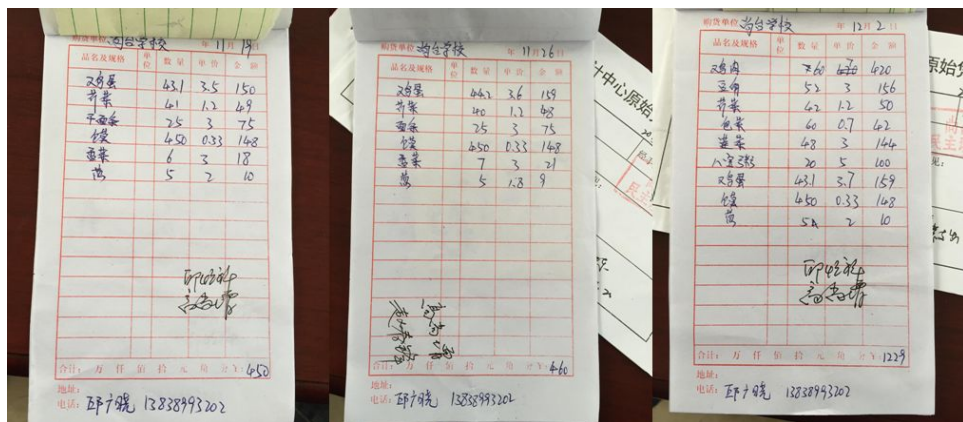 购货单位 尚台学校 年 11 月 19 日
品名及规格 单位 数量 单价 金额
鸡蛋 43.1 3.5 150
芹菜 41 1.2 49
干面条 25 3 75
馍 450 0.33 148
6 3 18
葱 5 2 10
合计: 万 仟 佰 拾 元 角 分 ¥: 450
地址:
电话: 邱广晓 13838993202
购货单位 尚台学校 年 11 月 26 日
品名及规格 单位 数量 单价 金额
鸡蛋 44.2 3.6 159
芹菜 40 1.2 48
面条 25 3 75
馍 450 0.33 148
7 3 21
葱 5 1.8 9
合计: 万 仟 佰 拾 元 角 分 ¥: 460
地址:
电话: 邱广晓 13838993202
计中心原始
购货单位 尚台学校 年 12 月 2 日
品名及规格 单位 数量 单价 金额
鸡肉 60 7 420
豆角 52 3 156
芹菜 42 1.2 50
包菜 60 0.7 42
48 3 144
八宝粥 20 5 100
鸡蛋 43.1 3.7 159
馍 450 0.33 148
葱 5 2 10
合计: 万 仟 佰 拾 元 角 分 ¥: 1229
地址:
电话: 邱广晓 13838993202
原始凭